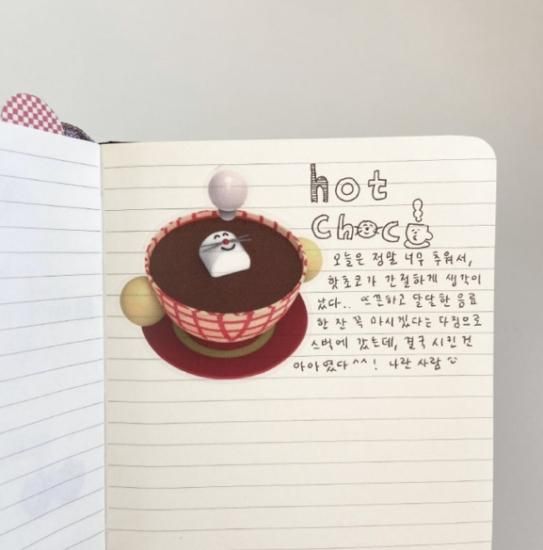 hot
choco
오늘은 정말 너무 추워서,
핫초코가 간절하게 생각이
났다.. 뜨끈하고 달달한 음료
한 잔 꼭 마시겠다는 다짐으로
스벅에 갔는데, 결국 시킨 건
아아였다^^! 나란 사람